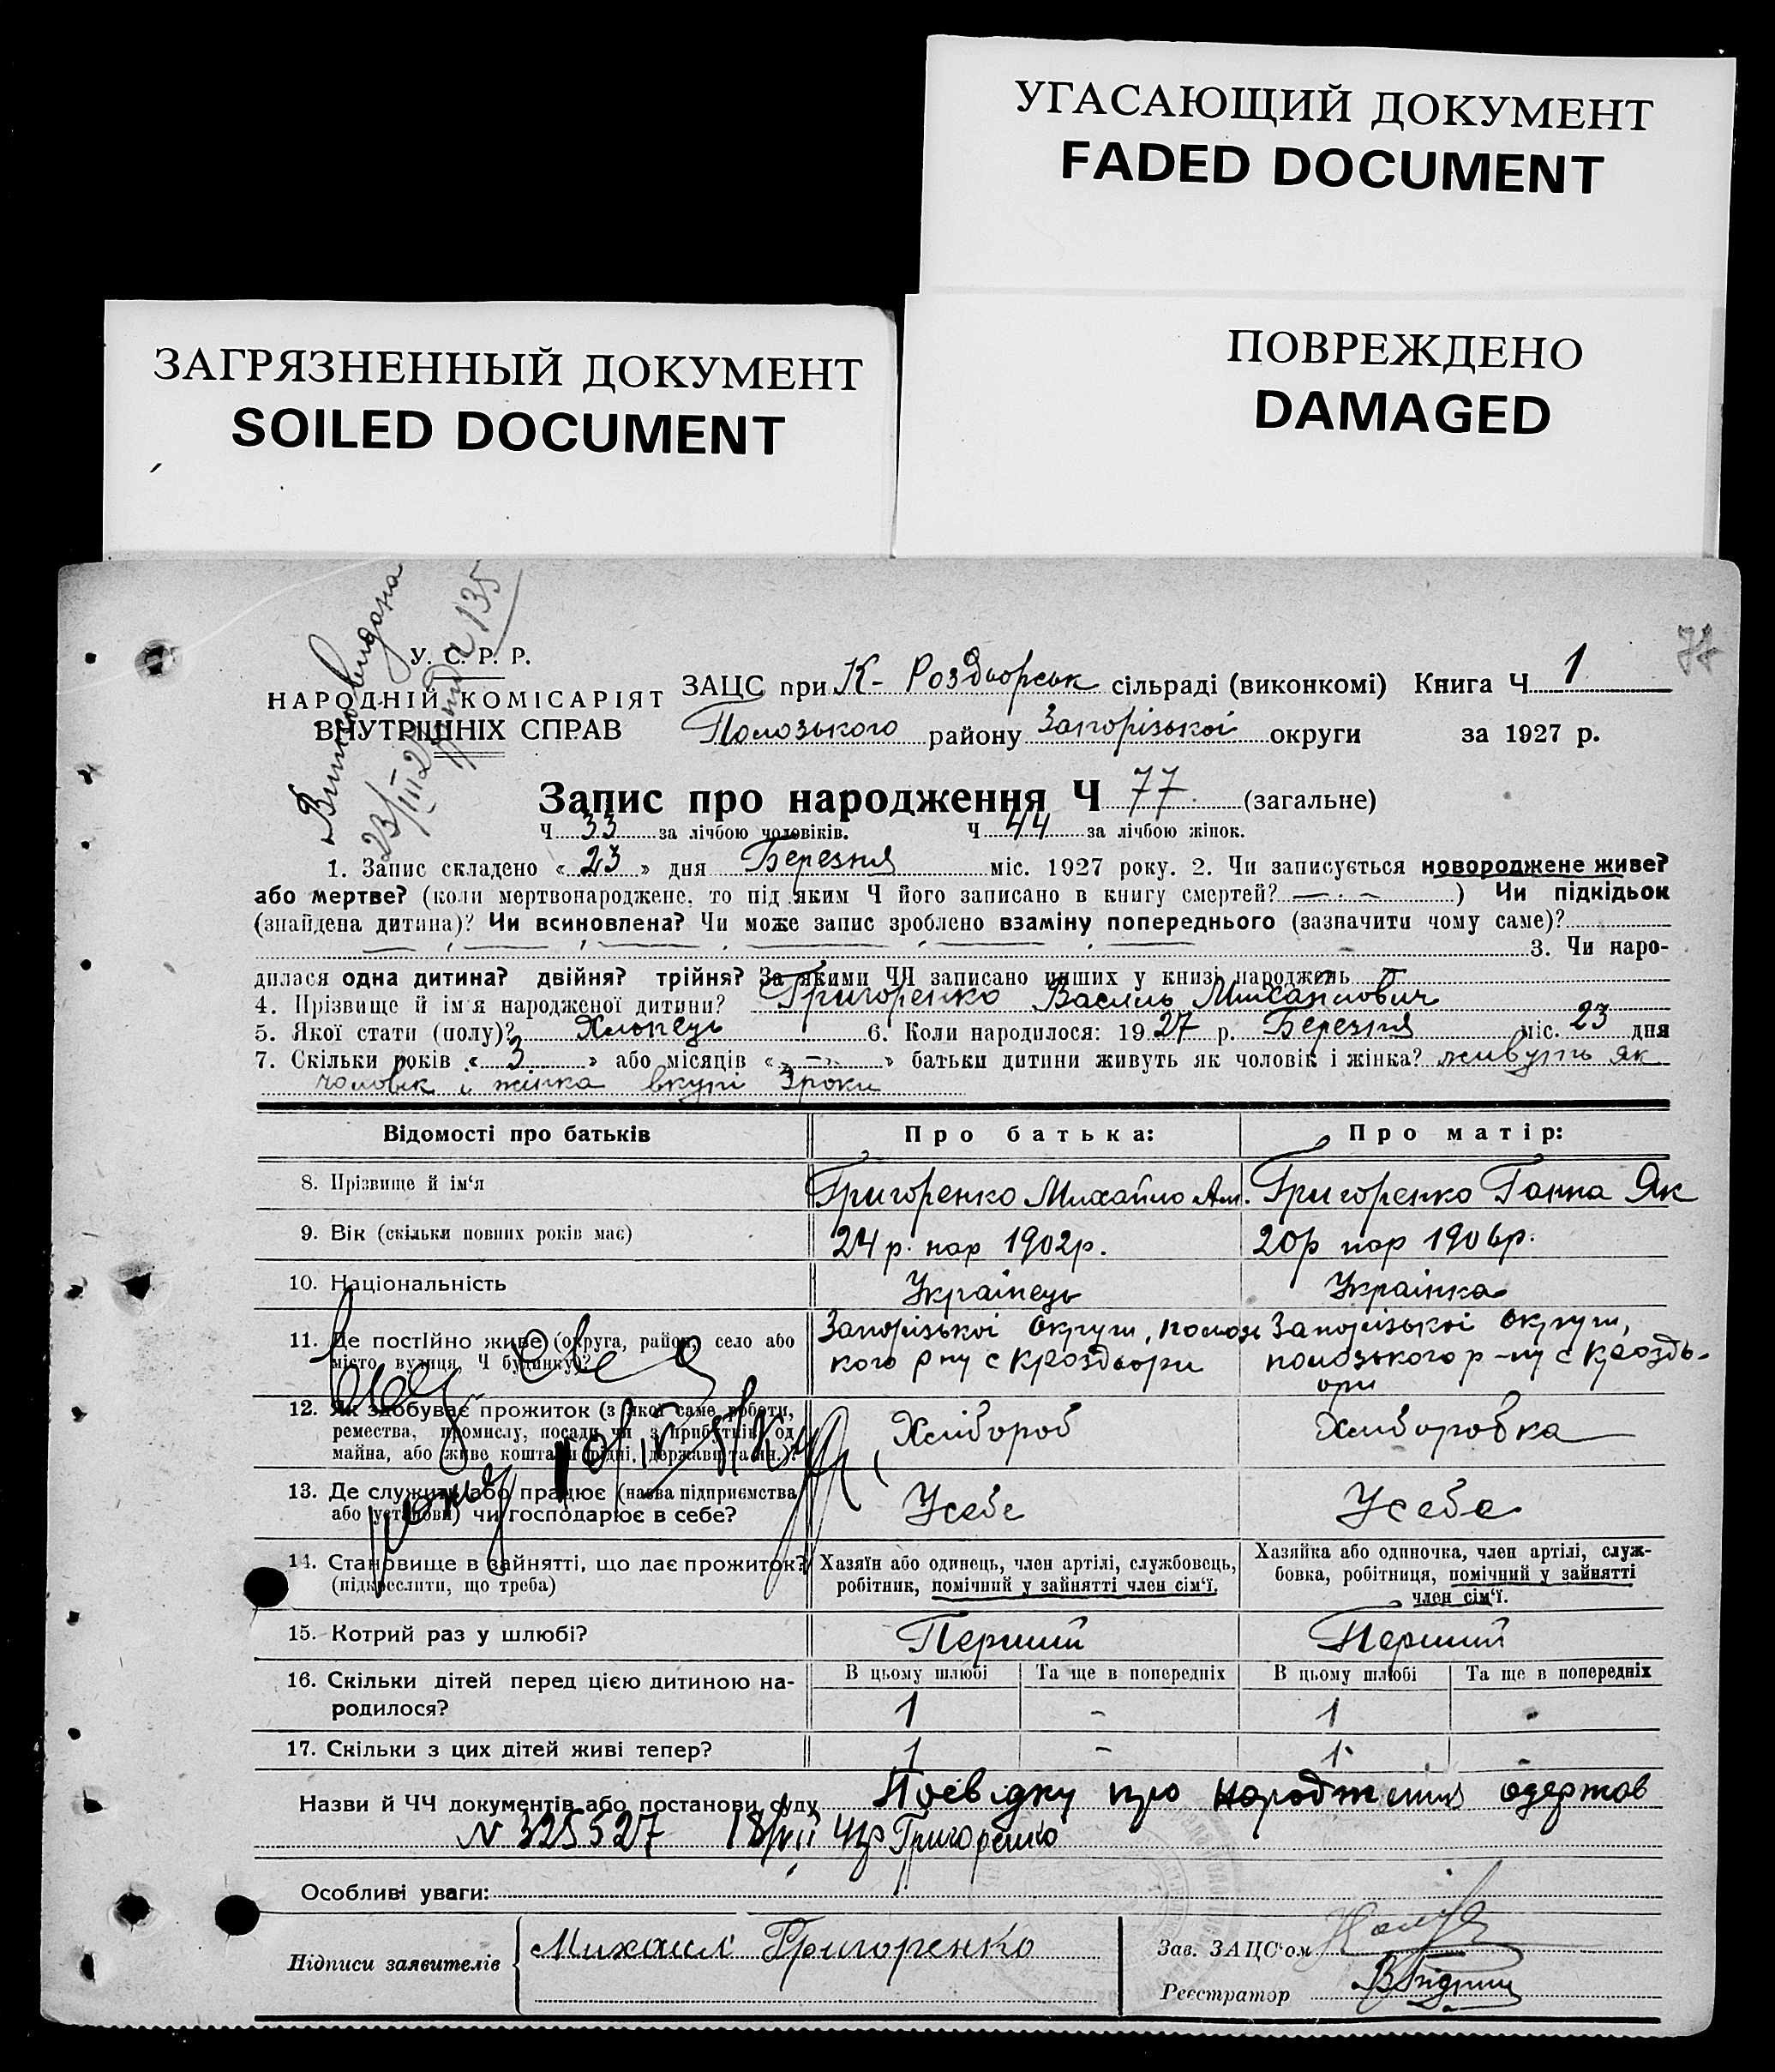 УГАСАЮЩИЙ ДОКУМЕНТ
FADED DOCUMENT
ЗАГРЯЗНЕННЫЙ ДОКУМЕНТ
SOILED DOCUMENT
ПОВРЕЖДЕНО
DAMAGED
77
видана
135
У. С. Р. Р.
НАРОДНІЙ КОМІСАРІЯТ
ВНУТРІШНІХ СПРАВ
ЗАЦС при К- Роздорськ сільраді (виконкомі) Книга Ч 1
Полозького району Запорізької округи за 1927 р.
Запис про народження Ч 77 (загальне)
Ч 33 за лічбою чоловіків. Ч 44 за лічбою жінок.
1. Запис складено «23» дня Березня міс. 1927 року. 2. Чи записується новороджене живе?
або мертве? (коли мертвонароджене, то під яким Ч його записано в книгу смертей? — . — ) Чи підкідьок
(знайдена дитина)? Чи всиновлена? Чи може запис зроблено взаміну попереднього (зазначити чому саме)?
3. Чи наро-
дилася одна дитина? двійня? трійня? За якими ЧЧ записано инших у книзі народжень
4. Прізвище й ім'я народженої дитини? Григоренко Василь Михайлович
5. Якої стати (полу)? Хлопець 6. Коли народилося: 1927 р. Березня міс. 23 дня
7. Скільки років «3» або місяців «—» батьки дитини живуть як чоловік і жінка? живуть як
чоловік і жінка вкупі 3 роки
Відомості про батьків Про батька: Про матір:
8. Прізвище й ім'я Григоренко Михайло Григоренко Ганна Як
9. Вік (скільки повних років має) 24 р. нар 1902р. 20р нар 1906р.
10. Національність Українець Українка
11. Де постійно живе (округа, район, село або місто, вулиця, Ч будинку)?
Запорізької Округи, полозь
кого р ну с Кроздори
Запорізької Округи,
полозького р-ну с Кроздо-
ри
12. Як здобуває прожиток (з якої саме роботи,
ремества, промислу, посади чи з прибутків од
майна, або живе коштами рідні, держави та ин.)?
Хлібороб Хлиборобка
13. Де служить або працює (назва підприємства
або установи) чи господарює в себе?
Усебе Усебе
14. Становище в зайнятті, що дає прожиток?
(підкреслити, що треба)
Хазяїн або одинець, член артілі, службовець,
робітник, помічний у зайнятті член сім'ї.
Хазяйка або одиночка, член артілі, служ-
бовка, робітниця, помічний у зайнятті
член сім'ї.
15. Котрий раз у шлюбі? Перший Перший
16. Скільки дітей перед цією дитиною на-
родилося?
В цьому шлюбі Та ще в попередніх В цьому шлюбі Та ще в попередніх
1 - 1 -
17. Скільки з цих дітей живі тепер? 1 - 1 -
Назви й ЧЧ документів або постанови суду Посвідку про народження одержав
N 325527 18/VII 41р Григоренко
Особливі уваги:
Підписи заявителів Михаил Григоренко
Зав. ЗАЦС'ом
Реєстратор